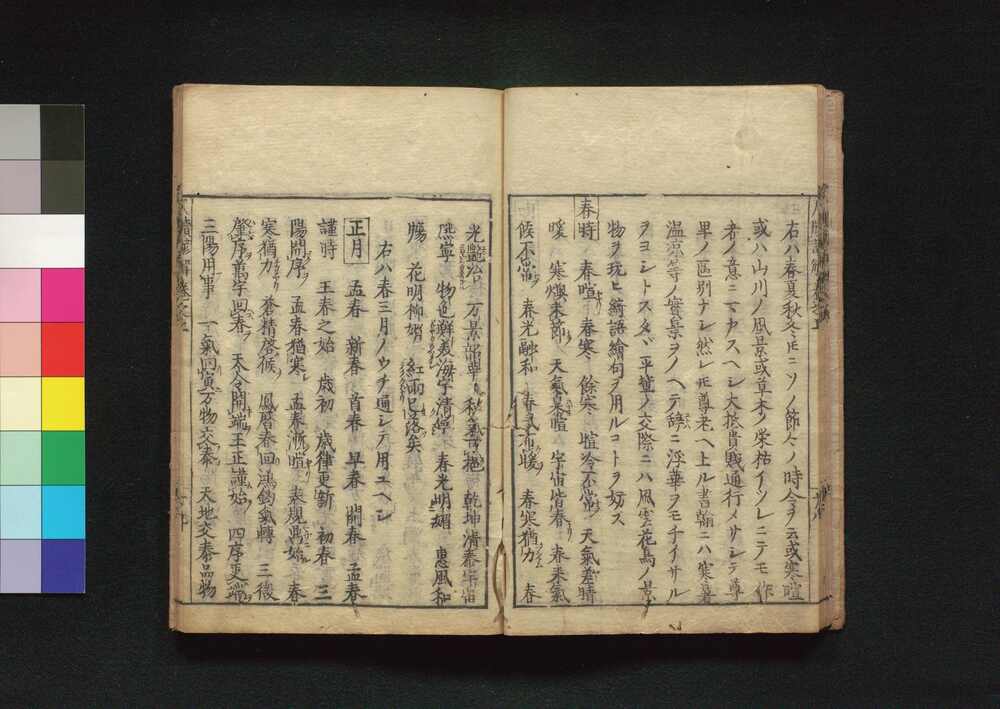 右ハ春夏秋冬トモニソノ節々ノ時令ヲ云或寒暄
或ハ山川ノ風景或草木ノ栄枯イツレニテモ作
者ノ意ニマカスヘシ大抵貴賤通行メサシテ尊
畢ノ区別ナシ然レトモ尊老ヘ上ル書翰ニハ寒暑
温凉等ノ實景ヲノヘテ辞ニ浮華ヲモチイサル
ヲヨシトス又平輩ノ交際ニハ風雲花鳥ノ景
物ヲ玩ヒ綺語繪句ヲ用ルコトラ妨ス
春時 春暄 春寒 餘寒 暄冷不常 天氣差晴
暖 寒燠未節 天氣暴暄 宇宙皆春 春来氣
候不常 春光融和 春氣布暖 春寒猶力 春
光艶冶 万景韶華 乾坤清泰宇宙
熈寧 物色鮮美海宇清 春光明媚 惠風和
暢 花明柳媚 紅雨已落矣
右ハ春三月ノウチ通シテ用ユヘシ
正月 孟春 新春 首春 早春 開春 孟春
謹時 王春之始 歳初 歳律更新 初春 三
陽開序 孟春猶寒 孟春漸暄 春規鼎始 春
寒猶力 蒼精啓候 鳳暦春回鴻鈞氣轉 三後
肇序萬宇回春 太令開端王正謹始 四序更端
三陽用事 一氣回寅万物交泰 天地交泰品物